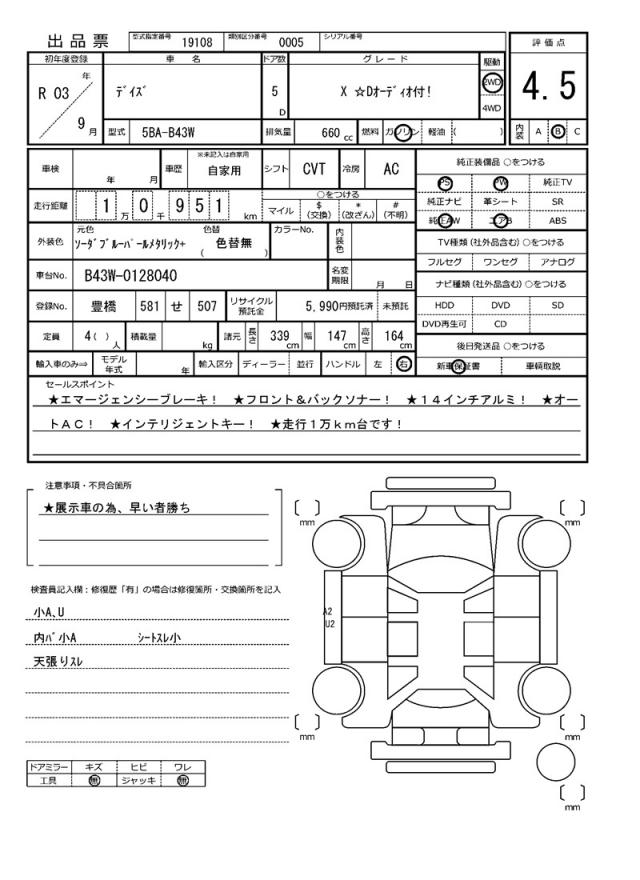 出品票 型式指定番号 19108 類別区分番号 0005 シリアル番号
評価点
4.5
初年度登録 車名 ドア数 グレード 駆動
R 03 年 9 月
デイズ 5 D X ☆Dオーディオ付! 2WD
4WD
型式 5BA-B43W 排気量 660 cc 燃料 ガソリン 軽油 ( )
内装 A B C
車検 年 月 車歴 ※未記入は自家用 自家用 シフト CVT 冷房 AC
走行距離 1 万 0 千 9 5 1 km
○をつける
マイル $(交換) *(改ざん) #(不明)
外装色 元色 ソーダブルーパールメタリック+ 色替 ( 色替無 ) カラーNo. 内装色
車台No. B43W-0128040 名変期限 月 日
登録No. 豊橋 581 せ 507 リサイクル預託金 5,990円預託済 未預託
定員 4( )人 積載量 kg 諸元 長さ 339 cm 幅 147 cm 高さ 164 cm
輸入車のみ⇒ モデル年式 年 輸入区分 ディーラー 並行 ハンドル 左 右
純正装備品 ○をつける
PS PW 純正TV
純正ナビ 革シート SR
純正AW エアB ABS
TV種類(社外品含む)○をつける
フルセグ ワンセグ アナログ
ナビ種類(社外品含む)○をつける
HDD DVD SD
DVD再生可 CD
後日発送品 ○をつける
新車保証書 車輌取説
セールスポイント
★エマージェンシーブレーキ! ★フロント&バックソナー! ★14インチアルミ! ★オー
トAC! ★インテリジェントキー! ★走行1万km台です!
注意事項・不具合箇所
★展示車の為、早い者勝ち
検査員記入欄:修復歴「有」の場合は修復箇所・交換箇所を記入
小A､U
内パ小A シートスレ小
天張りスレ
ドアミラー キズ ヒビ ワレ
工具 無 ジャッキ 無
[ ] mm
[ ] mm
A2
U2
[ ] mm
[ ] mm
[ ] mm